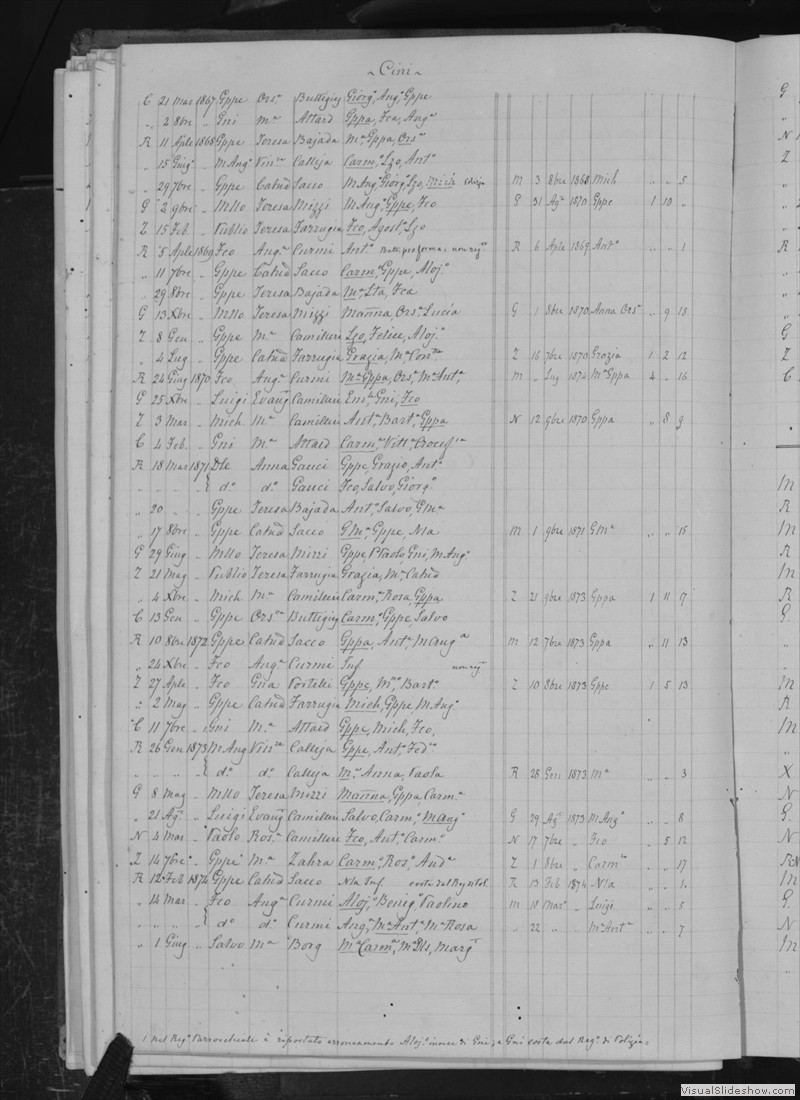 ~ Cini ~
C 21 Mar 1867 Gppe Ors.a Buttigieg Giorg.o, Ang.o, Gppe
„ 2 8bre „ Gni M.a Attard Gppa, Fca, Ang.a
R 11 Aple 1868 Gppe Teresa Bajada M.a Gppa, Ors.a
„ 15 Giug.o „ M Ang.o Calleja Carm.o, Lzo, Ant.o
„ 29 7bre „ Gppe Catud Sacco M Ang.o, Giorg.o, Lzo, M 3 8bre 1868 Mich „ „ 5
G 2 9bre „ Mllo Teresa Mizzi M Ang.o, Gppe, Fco G 31 Ag.o 1870 Gppe 1 10 „
Z 15 Feb „ Publio Teresa Farrugia Fco, Agost.o, Lzo
R 5 Aple 1869 Fco Ang.a Curmi Ant.o R 6 Aple 1869 Ant.o „ „ 1
„ 11 7bre „ Gppe Catud Sacco Carm.o, Gppe, Aloj.o
„ 29 8bre „ Gppe Teresa Bajada M.a, Lta, Fca
G 13 Xbre „ Mllo Teresa Mizzi Marina, Ors.a Lucia G 1 8bre 1870 Anna Ors.a „ 9 18
Z 8 Gen „ Gppe M.a Camilleri Lzo, Felice, Aloj.o
„ 4 Lug „ Gppe Catud Farrugia Grazia, M.a Z 16 7bre 1870 Grazia 1 2 12
R 24 Giug 1870 Fco Ang.a Curmi M.a Gppa, Ors.a M.a Ant.a M „ Lug 1874 M.a Gppa 4 „ 16
G 25 Xbre „ Luigi Evang Camilleri Em.le Gni, Fco
Z 3 Mar „ Mich M.a Camilleri Ant.a, Bart.a, Gppa N 12 9bre 1870 Gppa „ 8 9
C 4 Feb „ Gni M.a Attard Carm.a, Vitt.a
R 18 Mar 1871 Dle Anna Gauci Gppe, Grazio, Ant.o
„ „ „ d.o d.o Gauci Fco, Salvo, Giorg.o
„ 20 „ „ Gppe Teresa Bajada Ant.o, Salvo, GM.a
„ 17 8bre „ Gppe Catud Sacco GM.a, Gppe, Nla M 1 9bre 1871 GM.a „ „ 15
G 29 Giug „ Mllo Teresa Mizzi Gppe Paolo, Gni, M Ang.o
Z 21 Mag „ Publio Teresa Farrugia Grazia, M.a, Catud
„ 4 Xbre „ Mich M.a Camilleri Carm.a, Rosa, Gppa Z 21 9bre 1873 Gppa 1 11 17
C 13 Gen „ Gppe Ors.a Buttigieg Carm.o, Gppe Salvo
R 10 8bre 1872 Gppe Catud Sacco Gppa, Ant.a, M Ang.a M 12 7bre 1873 Gppa „ 11 13
„ 24 Xbre „ Fco Ang.a Curmi Inf
Z 27 Aple „ Fco Gppe, M.no, Bart.o Z 10 8bre 1873 Gppe 1 5 13
„ 2 Mag „ Gppe Catud Farrugia Mich, Gppe, M Ang.o
C 11 7bre „ Gni M.a Attard Gppe, Mich, Fco,
R 26 Gen 1873 M Ang Calleja Gppe, Ant.o
„ „ „ „ d.o d.o Calleja M.a, Anna, Paola R 28 Gen 1873 M.a „ „ 3
G 8 Mag „ Mllo Teresa Mizzi Marina, Gppa, Carm.a
„ 21 Ag.o „ Luigi Evang Camilleri Salvo, Carm.o, M Ang.o G 29 Ag.o 1873 M Ang.o „ „ 8
N 4 Mar „ Paolo Ros.a Camilleri Fco, Ant.o, Carm.o N 17 7bre „ Fco „ 5 12
Z 14 7bre „ Gppe M.a Zahra Carm.o, Ros.o, And.a Z 1 8bre „ Carm.o „ „ 17
R 12 Feb 1874 Gppe Catud Sacco Nla Inf R 13 Feb 1874 Nla „ „ 1
„ 14 Mar „ Fco Ang.a Curmi Aloj.o, Benig.o, Paolino M 18 Mar „ Luigi „ „ 5
„ „ „ „ d.o d.o Curmi Ang.a, M.a Ant.a, M.a Rosa „ 22 „ „ M.a Ant.a „ „ 7
„ 1 Giug „ Salvo M.a Borg M.a Carm.a, M.a Dls, Marg.t
1 Nel Reg.o Parrocchiale è riportato erroneamente Aloj.o invece di Gni, e Gni costa dal Reg.o di Polizia
VisualSlideshow.com